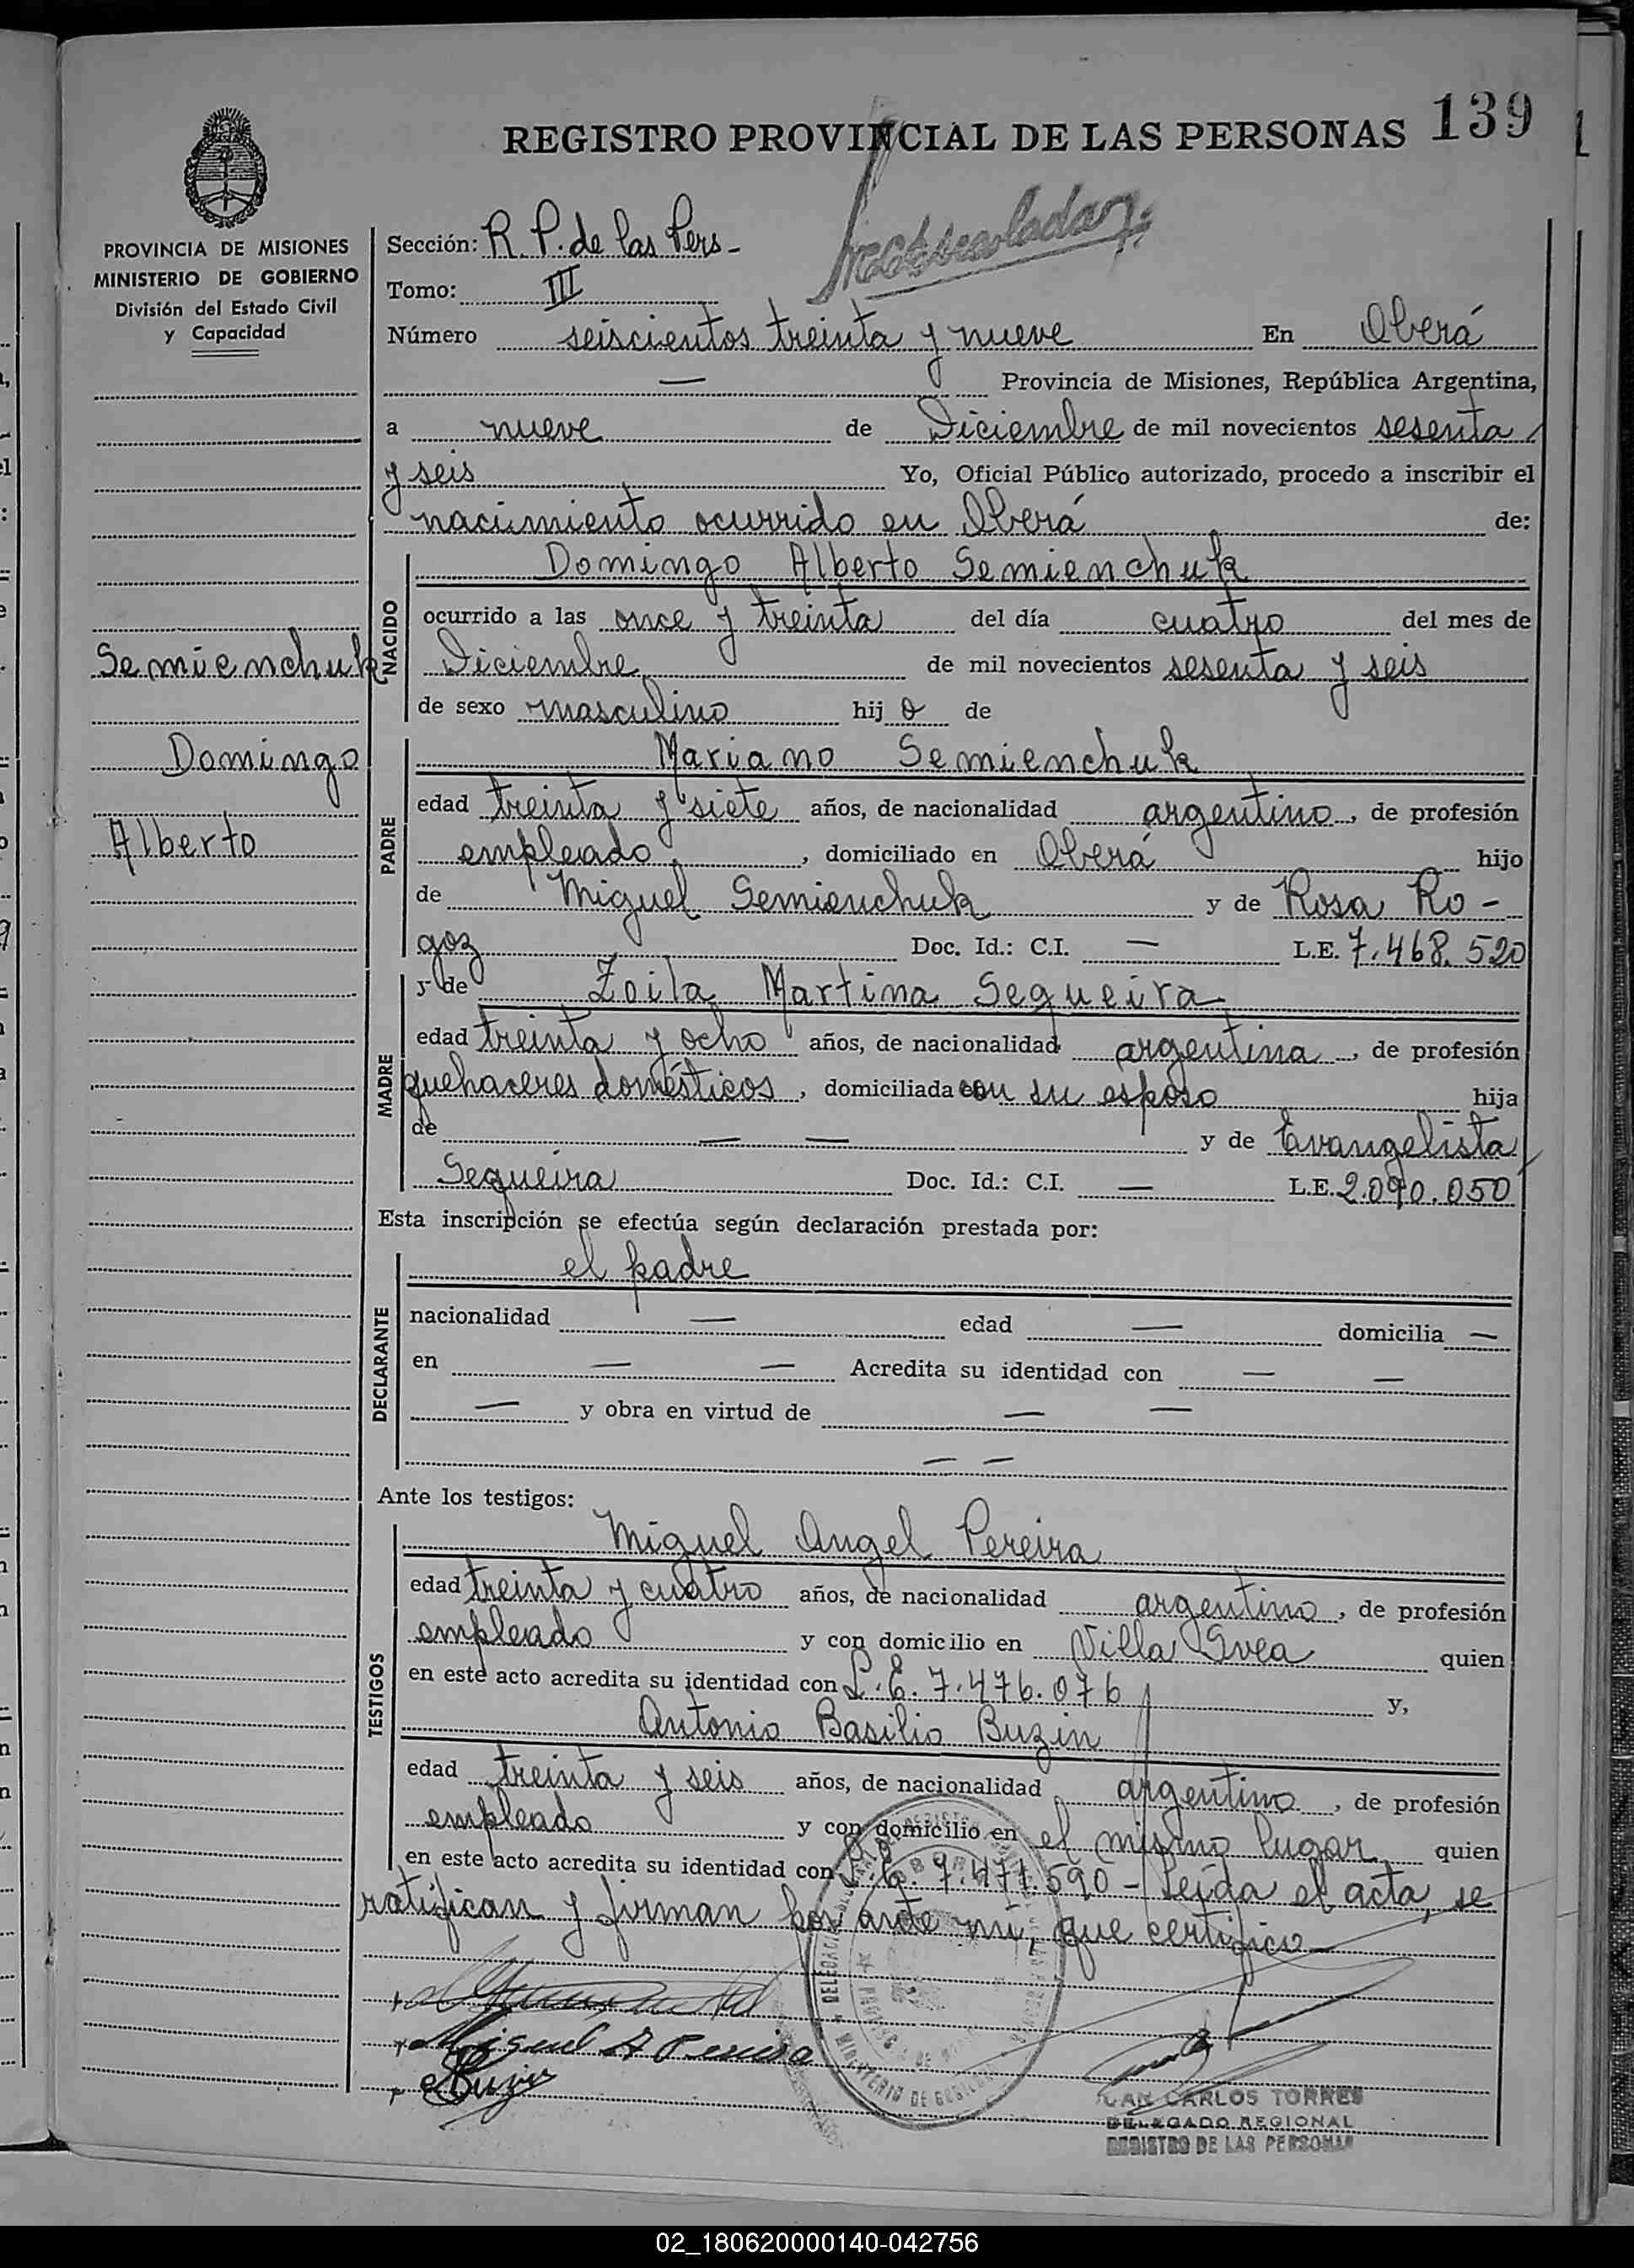 REGISTRO PROVINCIAL DE LAS PERSONAS 139
PROVINCIA DE MISIONES
MINISTERIO DE GOBIERNO
División del Estado Civil
y Capacidad
Semienchuk
Domingo
Alberto
Sección: R. P. de las Pers-
Tomo: III
Número seiscientos treinta y nueve En Oberá
— Provincia de Misiones, República Argentina,
a nueve de Diciembre de mil novecientos sesenta
y seis Yo, Oficial Público autorizado, procedo a inscribir el
nacimiento ocurrido en Oberá de:
NACIDO
Domingo Alberto Semienchuk
ocurrido a las once y treinta del día cuatro del mes de
Diciembre de mil novecientos sesenta y seis
de sexo masculino hijo de
PADRE
Mariano Semienchuk
edad treinta y siete años, de nacionalidad argentino, de profesión
empleado, domiciliado en Oberá hijo
de Miguel Semienchuk y de Rosa Ro-
goz Doc. Id.: C.I. — L.E. 7.468.520
MADRE
y de Zoila Martina Sequeira
edad treinta y ocho años, de nacionalidad argentina, de profesión
quehaceres domésticos, domiciliada con su esposo hija
de — — y de Evangelista
Sequeira Doc. Id.: C.I. — L.E. 2.090.050
Esta inscripción se efectúa según declaración prestada por:
DECLARANTE
el padre
nacionalidad — edad — domicilia —
en — — Acredita su identidad con — —
— y obra en virtud de — —
— —
Ante los testigos:
TESTIGOS
Miguel Angel Pereira
edad treinta y cuatro años, de nacionalidad argentino, de profesión
empleado y con domicilio en Villa Svea quien
en este acto acredita su identidad con L.E. 7.476.076 y,
Antonio Basilio Buzin
edad treinta y seis años, de nacionalidad argentino, de profesión
empleado y con domicilio en el mismo lugar quien
en este acto acredita su identidad con L.E. 7.471.590- Leída el acta, se
ratifican y firman por ante mí, que certifico
Miguel A Pereira
Buzin
MINISTERIO DE GOBIERNO
JUAN CARLOS TORRES
DELEGADO REGIONAL
REGISTRO DE LAS PERSONAS
02_180620000140-042756